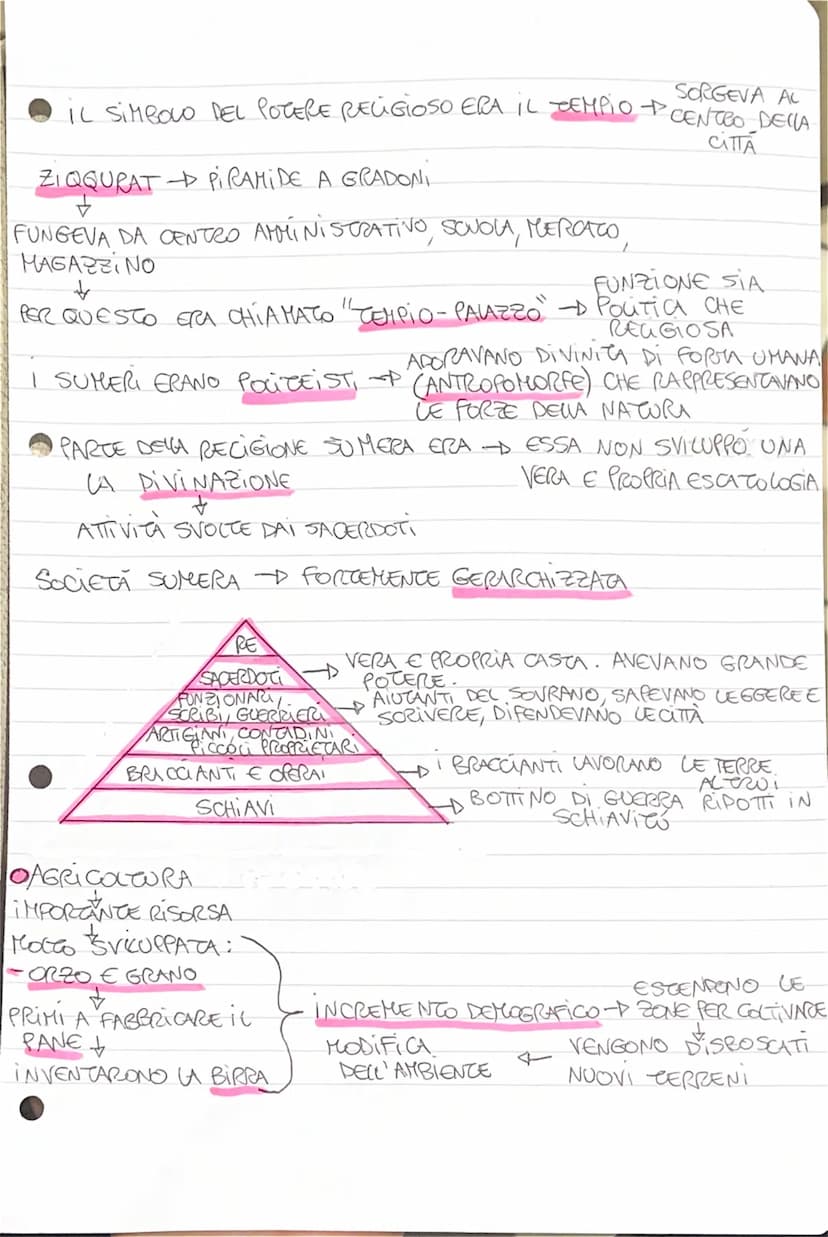 IL SIMBOLO DEL POTERE RELIGIOSO ERA IL TEMPIO → SORGEVA AL
CENTRO DELLA
CITTÀ
ZIQQURAT → PIRAMIDE A GRADONI
↓
FUNGEVA DA CENTRO AMMINISTRATIVO, SCUOLA, MERCATO,
MAGAZZINO
↓
PER QUESTO ERA CHIAMATO "TEMPIO-PALAZZO" → FUNZIONE SIA
POLITICA CHE
RELIGIOSA
I SUMERI ERANO POLITEISTI → ADORAVANO DIVINITÀ DI FORMA UMANA
(ANTROPOMORFE) CHE RAPPRESENTAVANO
LE FORZE DELLA NATURA
PARTE DELLA RELIGIONE SUMERA ERA → ESSA NON SVILUPPÒ UNA
LA DIVINAZIONE
VERA E PROPRIA ESCATOLOGIA
↓
ATTIVITÀ SVOLTE DAI SACERDOTI
SOCIETÀ SUMERA → FORTEMENTE GERARCHIZZATA
RE
SACERDOTI → VERA E PROPRIA CASTA. AVEVANO GRANDE
POTERE.
FUNZIONARI,
SCRIBI, GUERRIERI → AIUTANTI DEL SOVRANO, SAPEVANO LEGGERE E
SCRIVERE, DIFENDEVANO LE CITTÀ
ARTIGIANI, CONTADINI
PICCOLI PROPRIETARI
BRACCIANTI E OPERAI → I BRACCIANTI LAVORANO LE TERRE
ALTRUI
SCHIAVI → BOTTINO DI GUERRA RIDOTTI IN
SCHIAVITÙ
AGRICOLTURA
↓
IMPORTANTE RISORSA
↓
MOLTO SVILUPPATA:
- ORZO E GRANO
↓
PRIMI A FABBRICARE IL
PANE ↓
INVENTARONO LA BIRRA
INCREMENTO DEMOGRAFICO → ESTENDONO LE
ZONE PER COLTIVARE
↓
VENGONO DISBOSCATI
NUOVI TERRENI
← MODIFICA
DELL'AMBIENTE